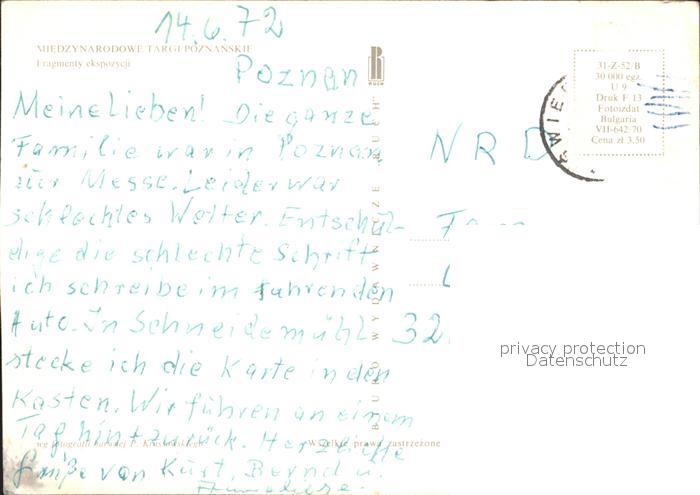 14.6.72
MIĘDZYNARODOWE TARGI POZNAŃSKIE
Fragmenty ekspozycji
Poznan
Meine Lieben! Die ganze
Familie war in Poznan
zur Messe. Leider war
schlechtes Wetter. Entschul-
dige die schlechte Schrift
ich schreibe im fahrenden
Auto. In Schneidemühl
stecke ich die Karte in den
Kasten. Wir führen an einem
Tag hin + zurück. Herzliche
Grüße von Kurt, Bernd u.
Wszelkie prawa zastrzeżone
BIURO WYDAWNICZE „RUCH”
RUCH
31-Z-52/B
30 000 egz.
U 9
Druk F 13
Fotoizdat
Bułgaria
VII-642/70
Cena zł 3,50
NRD
32
privacy protection
Datenschutz